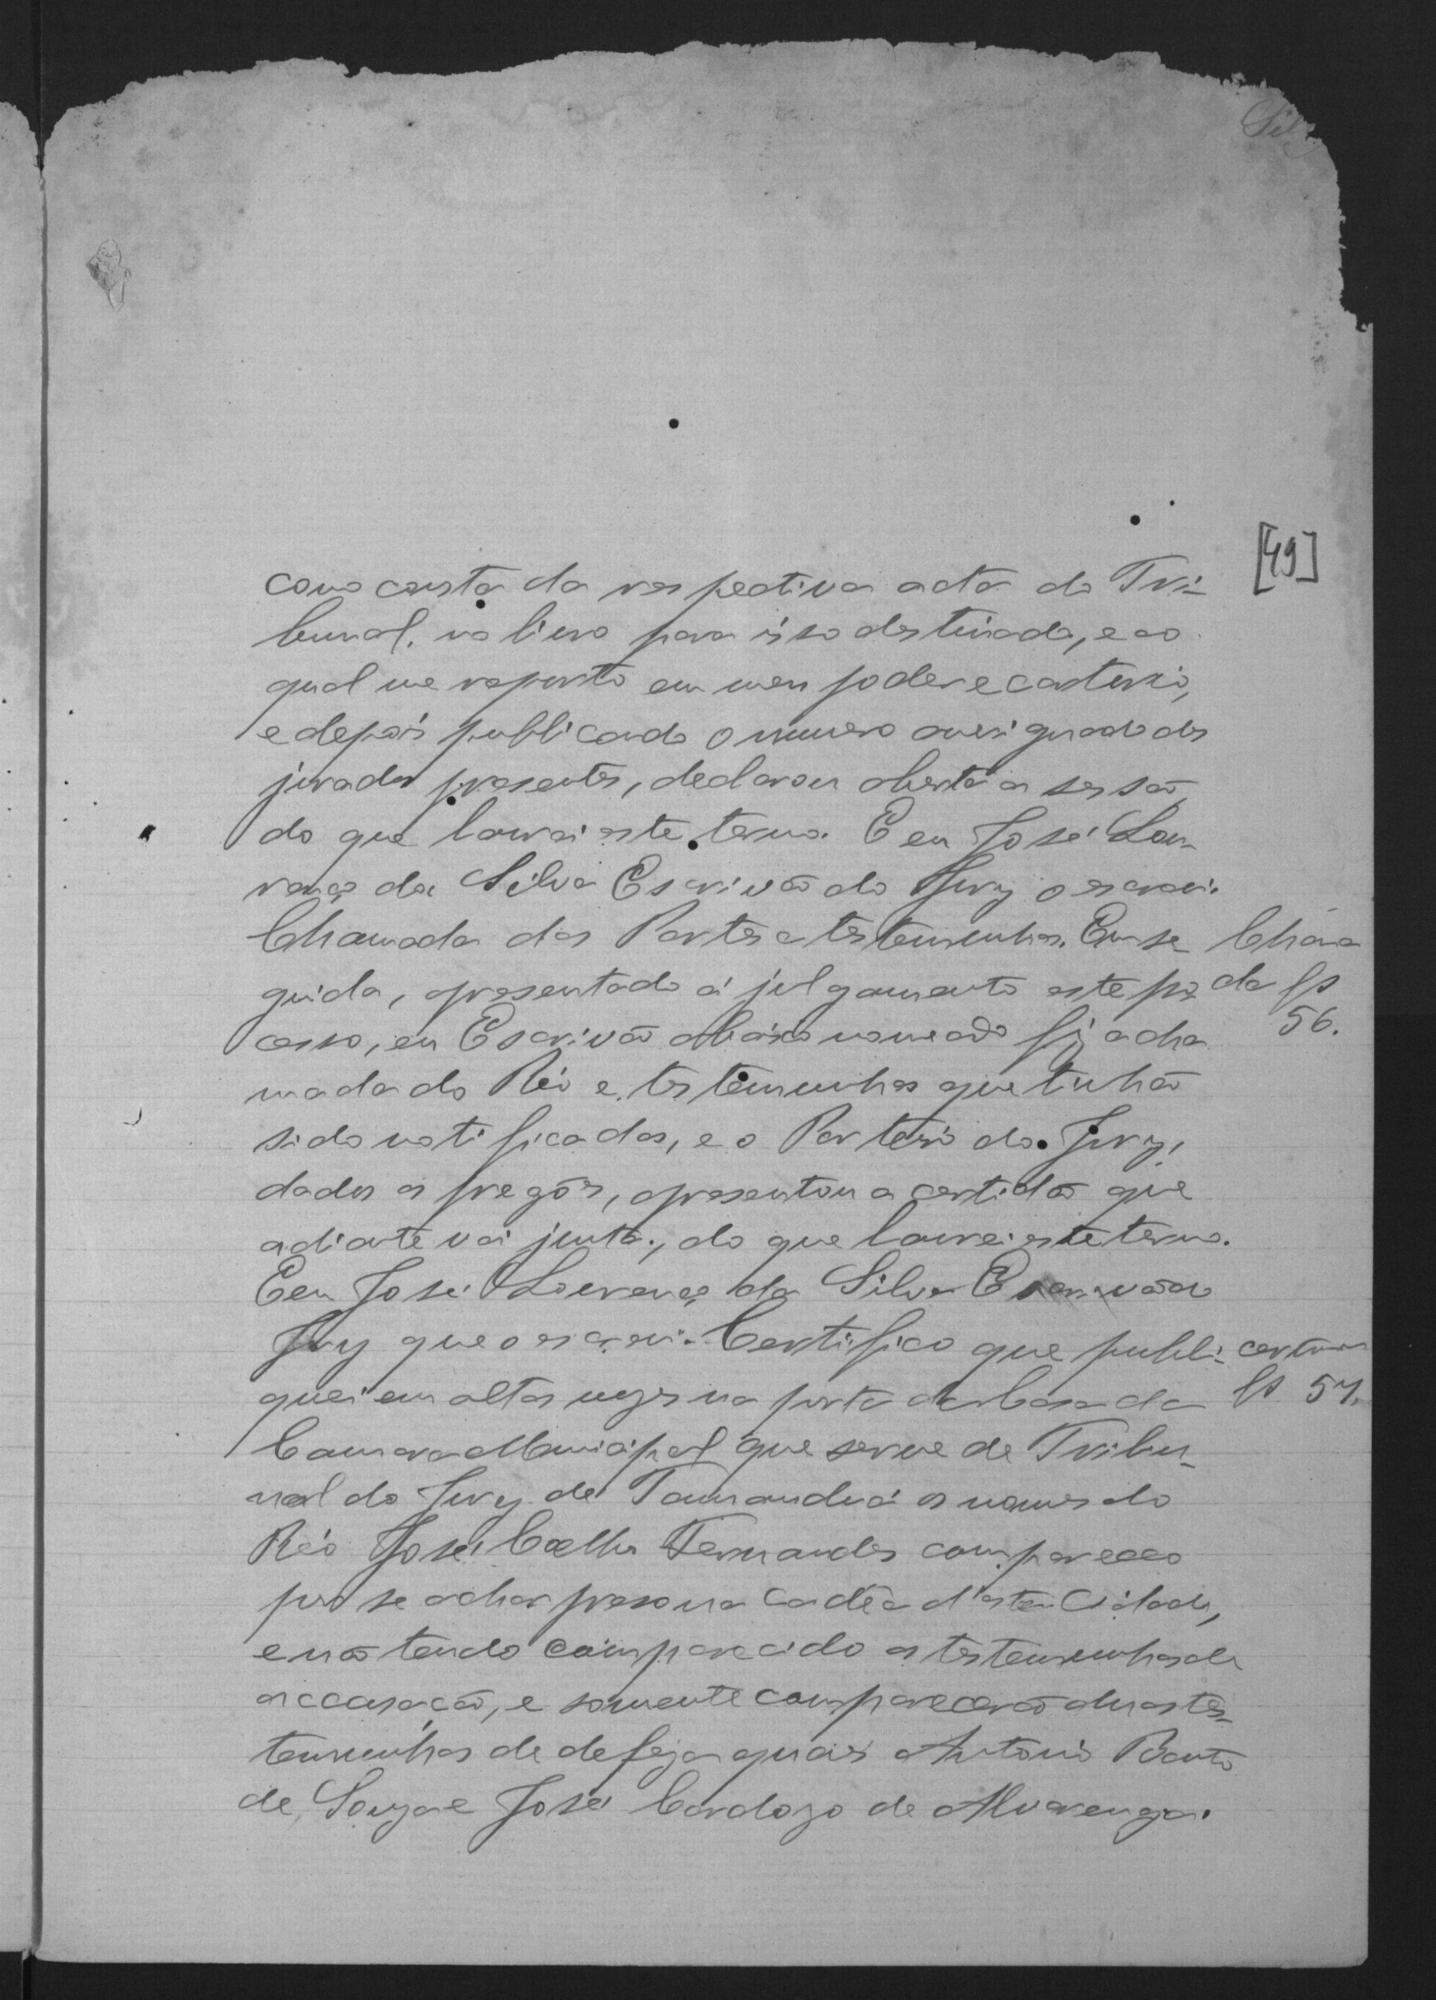 Sil
[49]
como consta da respectiva acta do Tri-
bunal, no livro para isso destinado, e ao
qual me reporto em meu poder e cartorio,
e depois publicando o numero averiguado dos
jurados presentes, declarou aberta a sessão
do que lavrei este termo. E eu José Lou-
renço da Silva Escrivão do Jury o escrevi.
Chamada das Partes e testemunhas. Em se-
guida, apresentado á julgamento este pro-
cesso, eu Escrivão abaixo nomeado fiz a cha
mada do Réo e testemunhas que tinhão
sido notificadas, e o Porteiro do Jury,
dados os pregões, apresentou a certidão que
adiante vai junta, do que lavrei este termo.
E eu José Lourenço da Silva Escrivão do
Jury que o escrevi. Certifico que publi-
quei em altas vozes na porta da Casa da
Camara Municipal que serve de Tribu-
nal do Jury de Tamanduá os nomes do
Réo José Coelho Fernandes compareceo
por se achar preso na Cadêa d'esta Cidade,
e não tendo comparecido as testemunhas de
accusação, e somente comparecerão duas tes-
temunhas de defeza quais Antonio Bento
de Souza e José Cardozo de Alvarenga.
Chama
da fs
56.
fs 57.